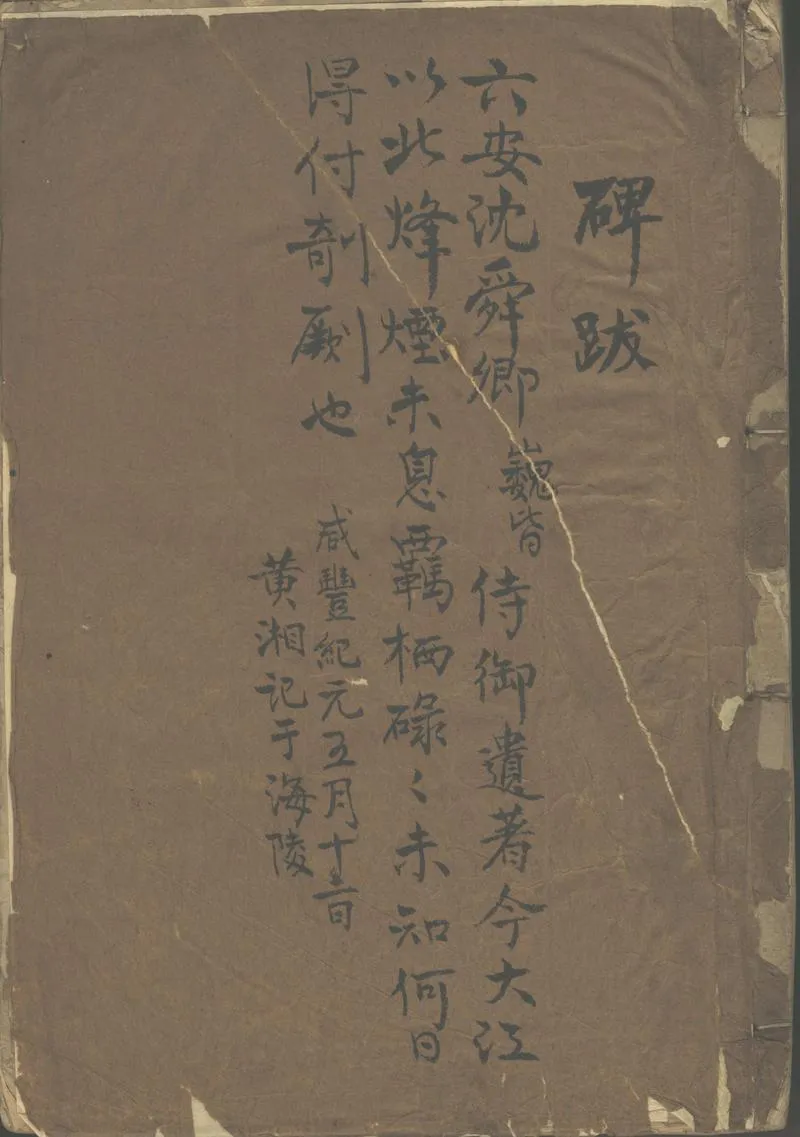 碑跋
六安沈舜卿巍皆侍御遺著今大江
以北烽煙未息羈栖碌〻未知何日
得付剞劂也
咸豐紀元五月十二日
黄湘記于海陵